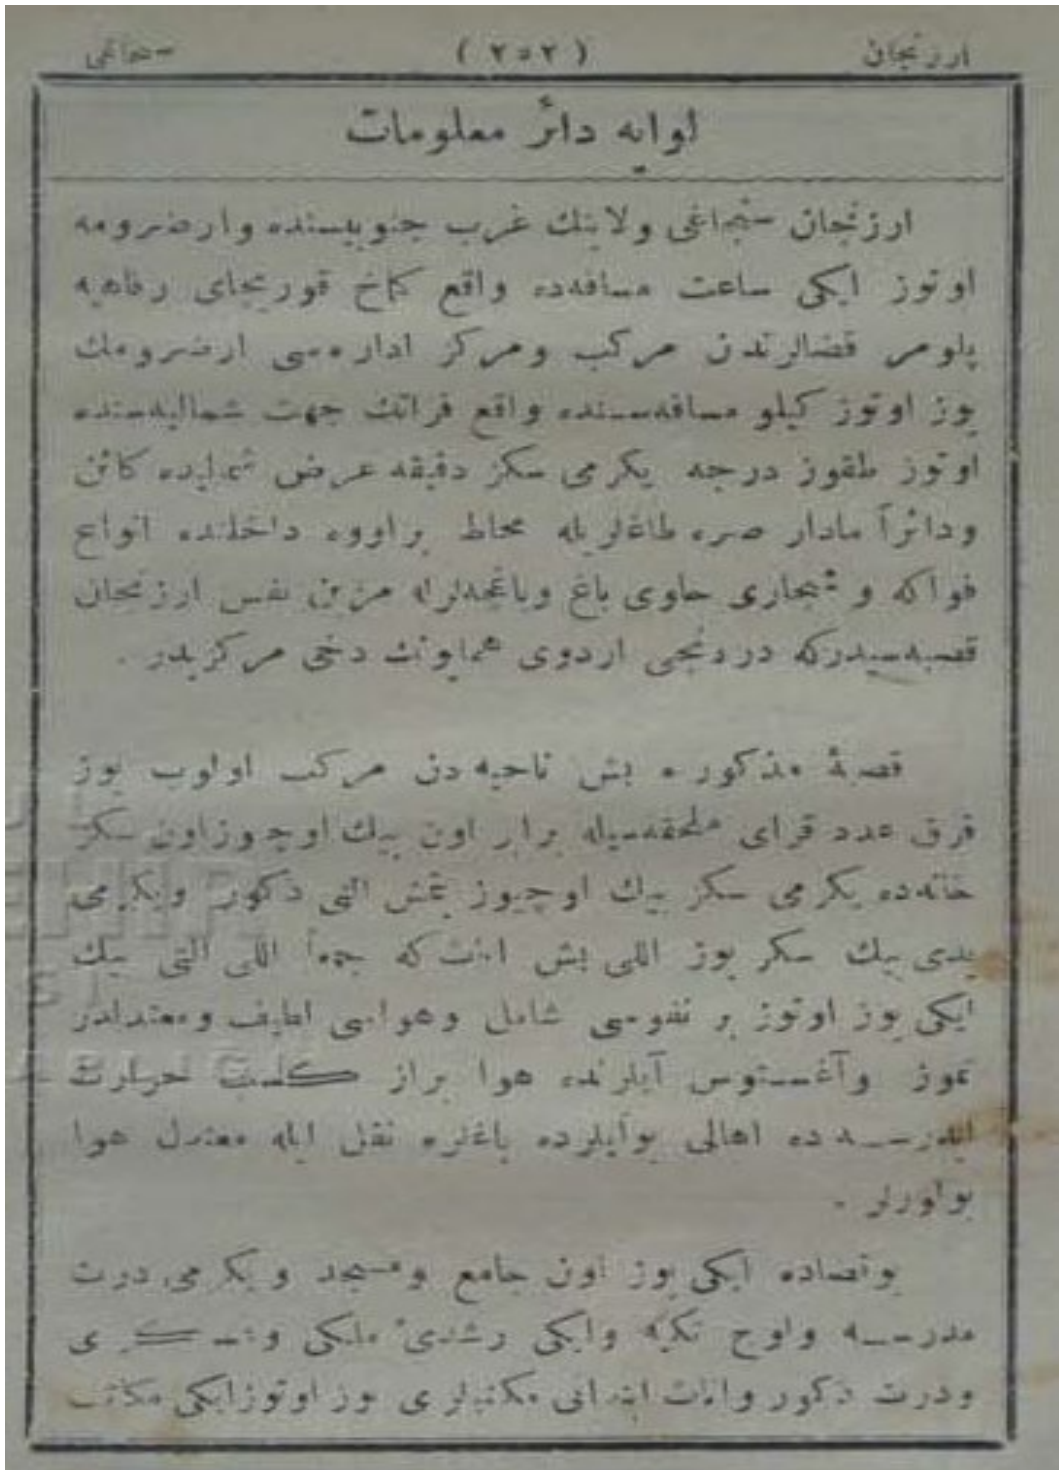 ارزنجان ( ٢٥٢ ) سنجاغی
لوایه دائر معلومات
ارزنجان سنجاغی ولاینك غرب جنوبیسنده وارضرومه
اوتوز ایکی ساعت مسافه‌ده واقع کماخ قوریچای رفاهیه
پلومر قضالرندن مرکب ومرکز اداره‌سی ارضرومك
یوز اوتوز کیلو مسافه‌سنده واقع فراتك جهت شمالیه‌سنده
اوتوز طقوز درجه یکرمی سکز دقیقه عرض شمالیده کائن
ودائراً مادار صره طاغلریله محاط براووه داخلنده انواع
فواکه و اشجاری حاوی باغ وباغچه‌لرله مزین نفس ارزنجان
قصبه‌سیدرکه دردنجی اردوی همایونك دخی مرکزیدر .
قصبهٔ مذکوره بش ناحیه‌دن مرکب اولوب یوز
قرق عدد قرای ملحقه‌سیله برابر اون بیك اوچوزاون سکز
خانه‌ده یکرمی سکز بیك اوچیوز یتمش التی ذکور ویکرمی
یدی بیك سکز یوز اللی بش اناث که جمعاً اللی التی بیك
ایکی یوز اوتوز بر نفوسی شامل وهواسی لطیف ومعتدلدر
تموز وآغستوس آیلرنده هوا براز کسب حرارت
ایدرسه‌ده اهالی بوآیلرده باغلره نقل ایله معتدل هوا
بولورلر .
بوقضاده ایکی یوز اون جامع ومسجد ویکرمی درت
مدرسه واوچ تکیه وایکی رشدیٔ ملکی وعسکری
ودرت ذکور واناث ابتدائی مکتبلری یوز اوتوزایکی مکاتب